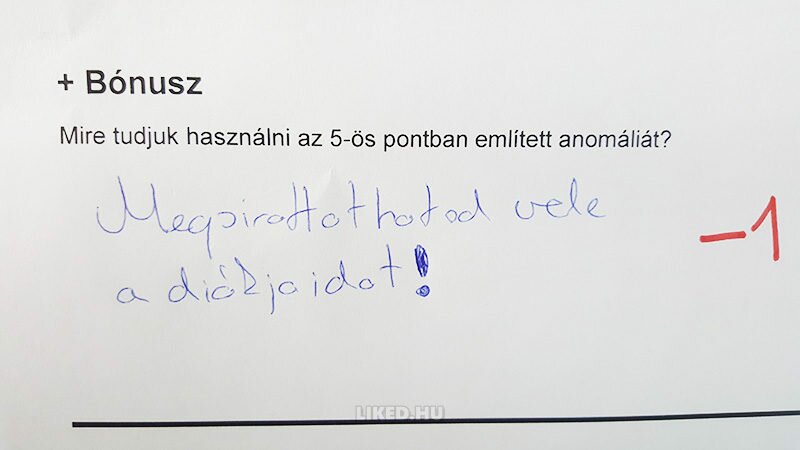 + Bónusz
Mire tudjuk használni az 5-ös pontban említett anomáliát?
Megpirattathatod vele
a diákjaidat!
-1
LIKED.HU